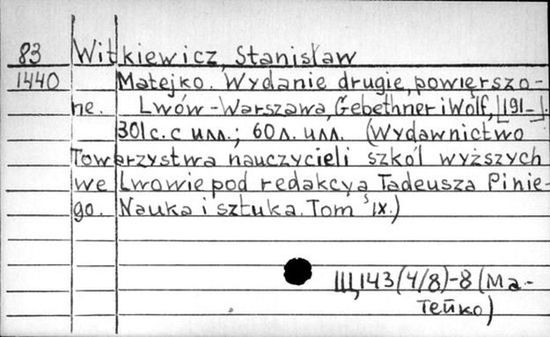 83 Witkiewicz, Stanisław
1440 Matejko. Wydanie drugie, powięrszo-
ne. Lwów-Warszawa, Gebethner i Wolf, [191-].
301 с. с илл.; 60 л. илл. (Wydawnictwo
Towarzystwa nauczycieli szkól wyższych
we Lwowie pod redakcya Tadeusza Pinie-
go. Nauka i sztuka. Tom IX.)
Щ143(4/8)-8 (Ма-
тейко)